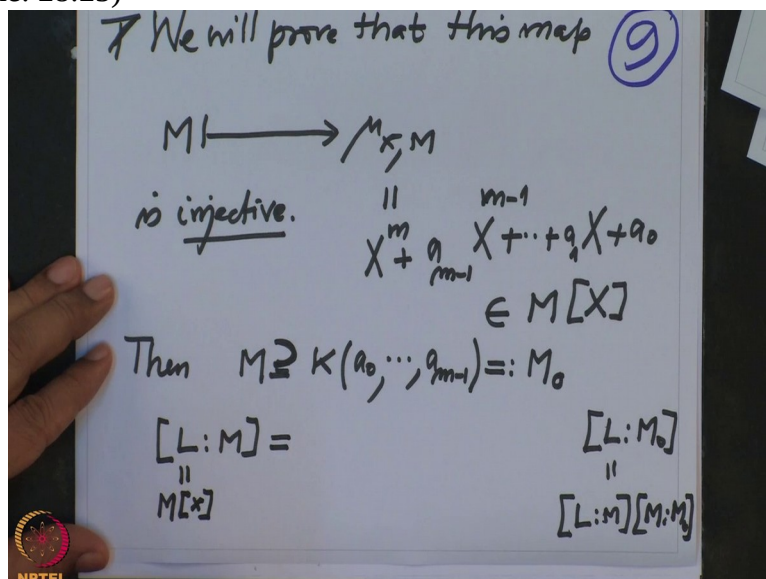 We will prove that this map
9
M ↦ μ_{x,M}
is injective.
||
X^m + a_{m-1} X^{m-1} + ·· + a_1 X + a_0
∈ M[X]
Then M ⊇ K(a_0, ···, a_{m-1}) =: M_0
[L:M] = [L:M_0]
|| ||
M[x] [L:M][M:M_0]
NPTEL